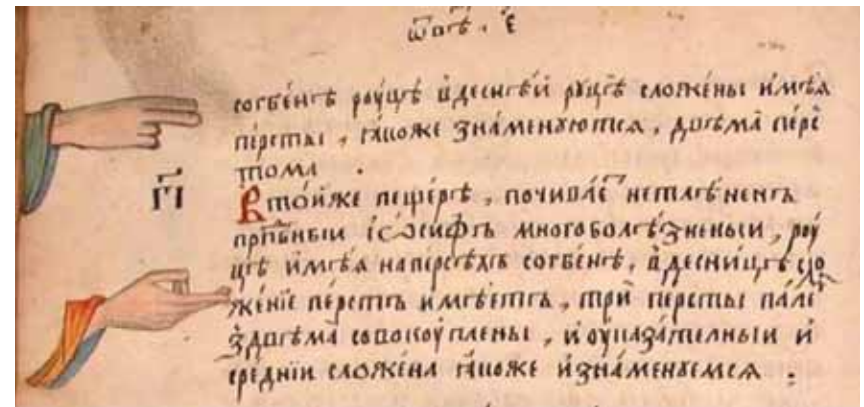 ѿвѣ҇, є҃
согбенѣ рꙋцѣ в̾деснѣй рꙋцѣ сложены имѣѧ
персты, ꙗкоже знаменуютсѧ, двѣма пере
тома .
г҃і
Втойже пещерѣ, почиваѐ нетлѣненъ
прпⷣбныи іѡсифъ многоболѣзненыи, рꙋ
цѣ имѣѧ наперсѣхъ согбенѣ, в̾десницѣ сло
женїе перстъ имѣетъ, три персты пале
з̾двѣма совокꙋплены, и оуказателныи и
среднїи сложена ꙗкоже и знаменуемсѧ :